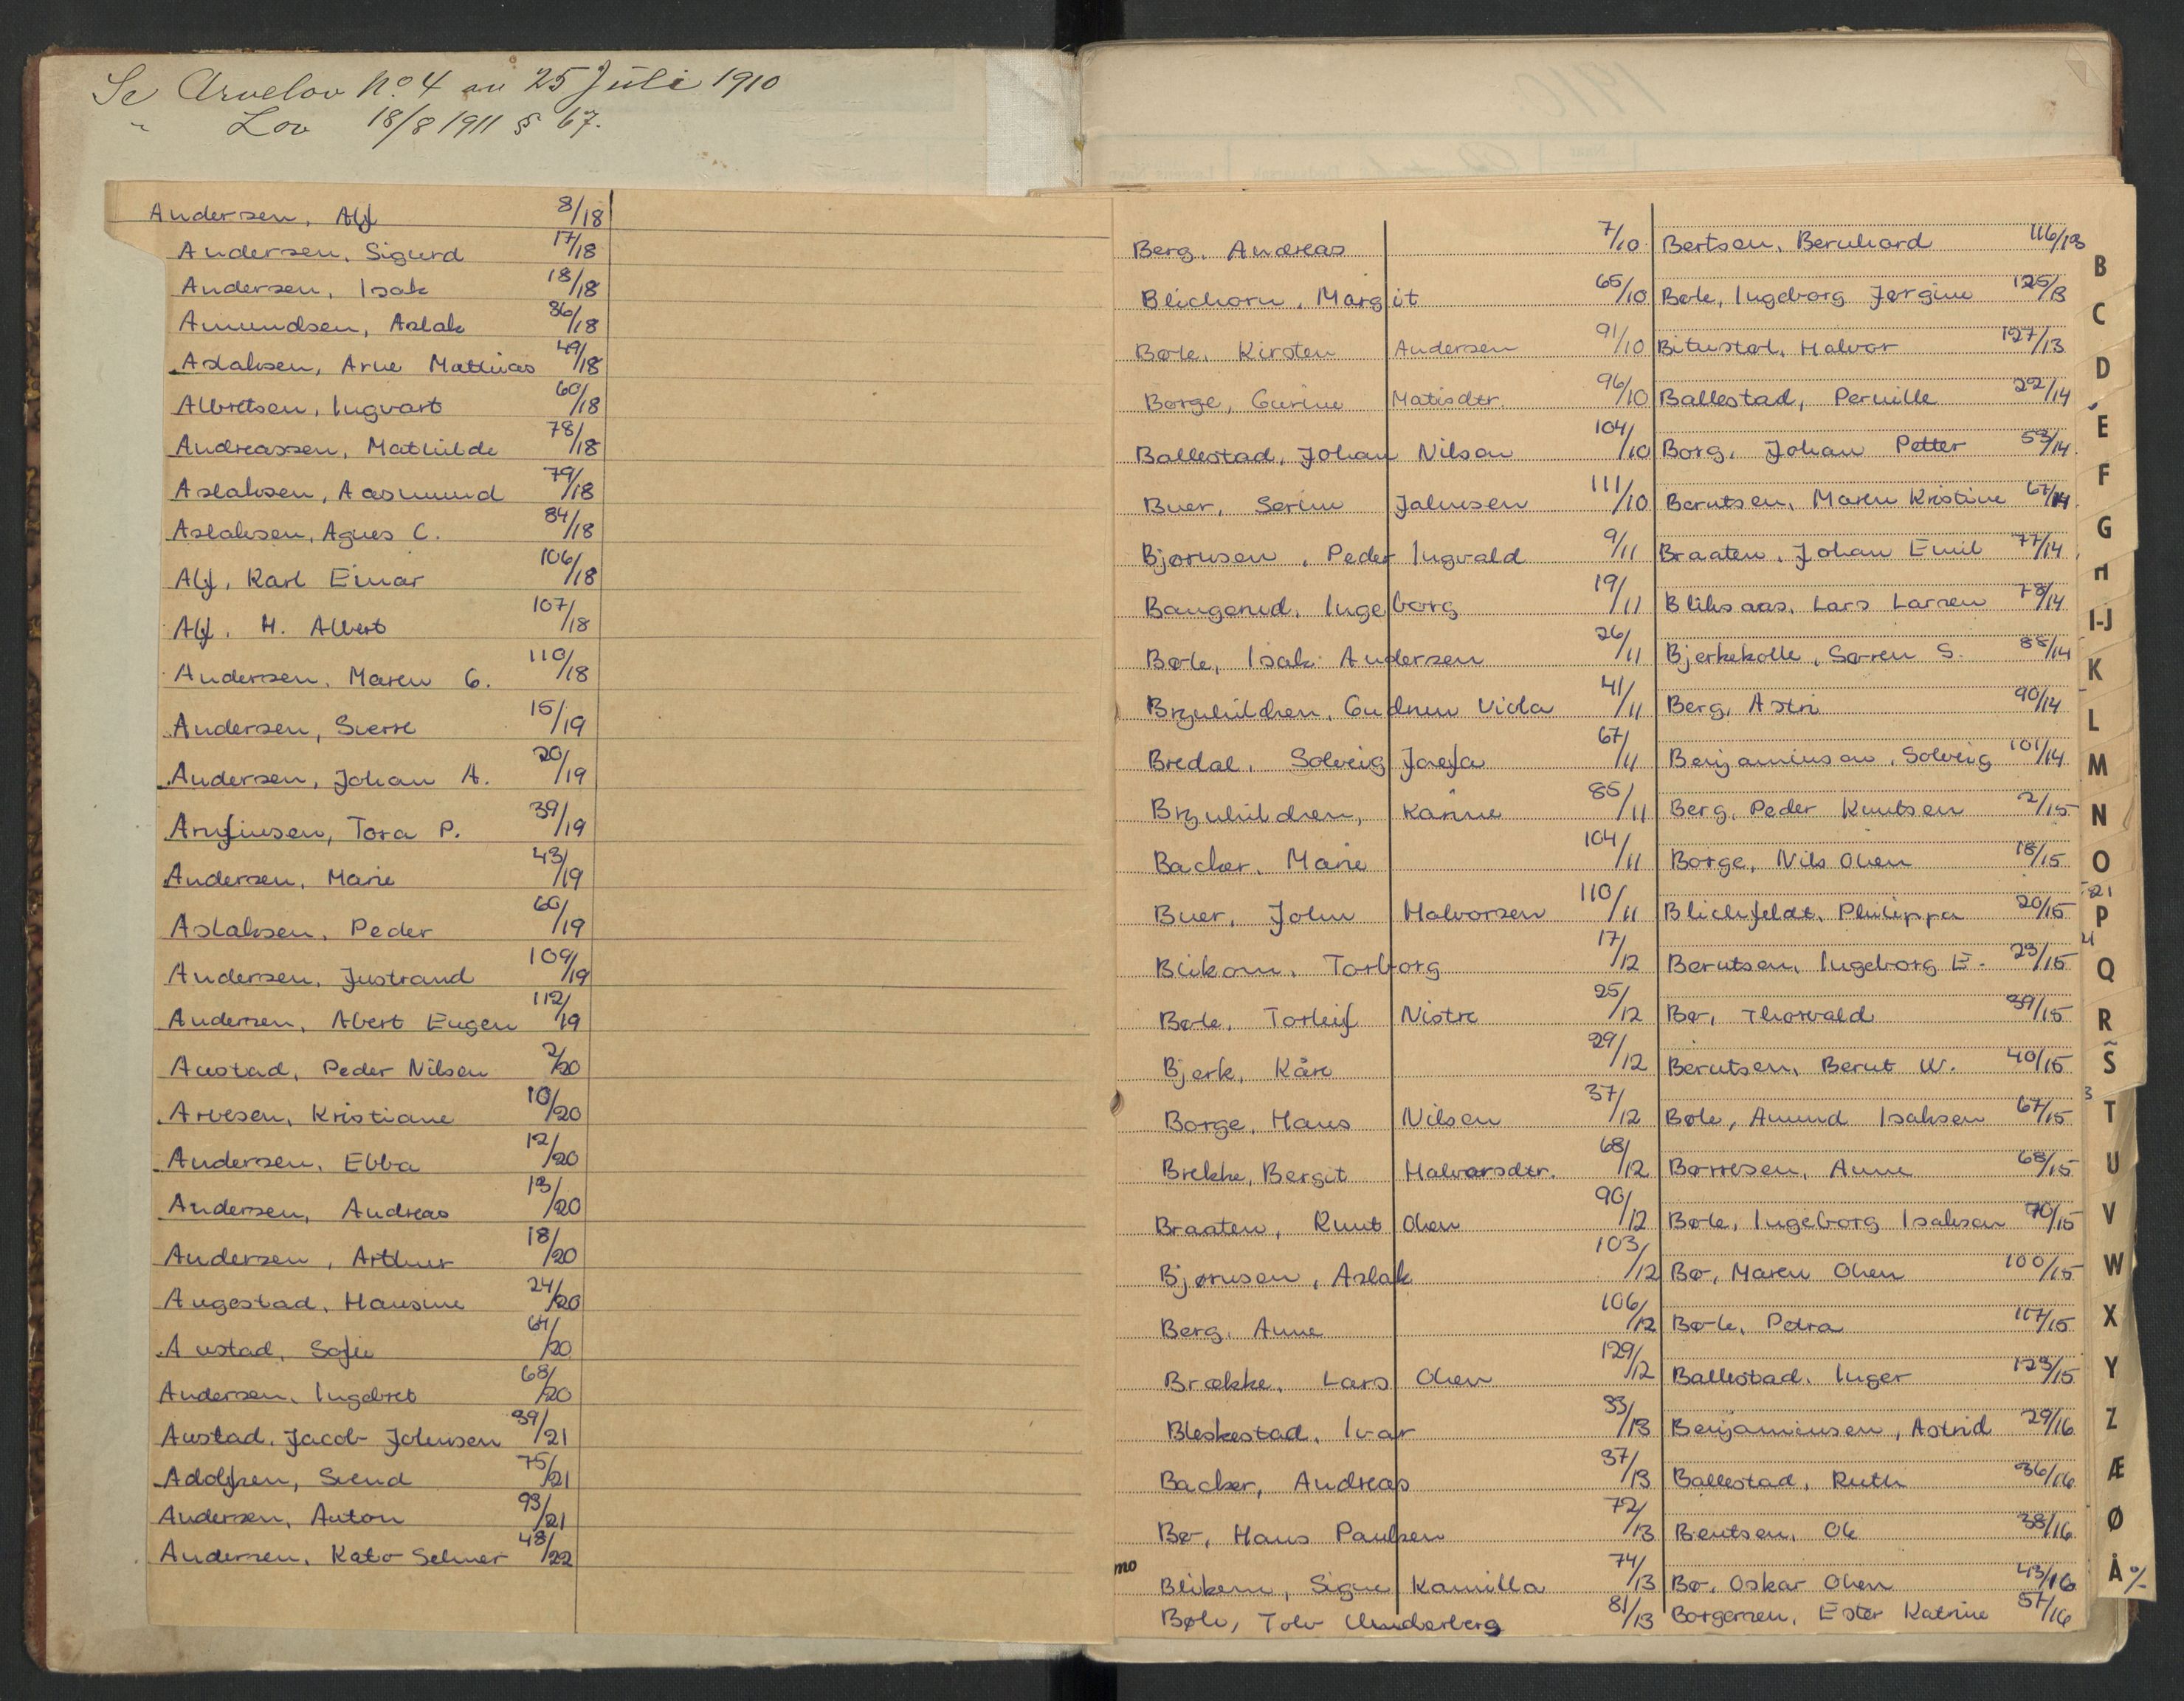 Se Arvelov No. 4 av 25 Juli 1910
" Lov 18/8 1911 § 67.
Andersen, Alf 8/18
Andersen, Sigurd 17/18
Andersen, Isak 18/18
Amundsen, Aslak 36/18
Aslaksen, Arne Mathias 49/18
Albretsen, Ingvart 60/18
Andreassen, Mathilde 78/18
Aslaksen, Aasmund 79/18
Aslaksen, Agnes C. 84/18
Alf, Karl Einar 106/18
Alf, H. Albert 107/18
Andersen, Maren G. 110/18
Andersen, Sverre 15/19
Andersen, Johan A. 20/19
Arnfinsen, Tora P. 39/19
Andersen, Marie 43/19
Aslaksen, Peder 60/19
Andersen, Justrand 109/19
Andersen, Abert Eugen 112/19
Austad, Peder Nilsen 2/20
Arvesen, Kristiane 10/20
Andersen, Ebba 12/20
Andersen, Andreas 13/20
Andersen, Arthur 18/20
Augestad, Hansine 24/20
Austad, Sofie 64/20
Andersen, Ingebret 68/20
Austad, Jacob Johnsen 39/21
Adolfsen, Svend 75/21
Andersen, Anton 93/21
Andersen, Kato Selmer 48/22
Berg, Andreas 7/10
Blichorn, Margit 65/10
Børle, Kirsten Andersen 91/10
Borge, Gurine Matisdtr. 96/10
Ballestad, Johan Nilsen 104/10
Buer, Serine Jahnsen 111/10
Bjørnsen, Peder Ingvald 9/11
Baugerud, Ingeborg 19/11
Børle, Isak Andersen 26/11
Brynhildsen, Gudrun Viola 41/11
Bredal, Solveig Josefa 67/11
Brynhildsen, Karine 85/11
Backer, Marie 104/11
Buer, John Halvorsen 110/11
Blikom, Torborg 17/12
Børle, Torleif Nistre 25/12
Bjerk, Kåre 29/12
Borge, Hans Nilsen 37/12
Brekke, Bergit Halvorsdtr. 68/12
Braaten, Knut Olsen 90/12
Bjørnsen, Aslak 103/12
Berg, Anne 106/12
Brække, Lars Olsen 129/12
Bleskestad, Ivar 33/13
Backer, Andreas 37/13
Bø, Hans Paulsen 72/13
mo
Blikom, Signe Kamilla 74/13
Bøle, Tolv Underberg 81/13
Bertsen, Bernhard 116/13
Børle, Ingeborg Jørgine 125/13
Bitustøl, Halvor 127/13
Ballestad, Pernille 22/14
Borg, Johan Petter 53/14
Berntsen, Maren Kristine 67/14
Braaten, Johan Emil 77/14
Bliksaas, Lars Larsen 78/14
Bjerkekolle, Søren S. 88/14
Berg, Astri 90/14
Benjaminsen, Solveig 101/14
Berg, Peder Knutsen 2/15
Borge, Nils Olsen 18/15
Blichfeldt, Philippa 20/15
Berntsen, Ingeborg E. 23/15
Bø, Thorvald 39/15
Berntsen, Bernt W. 40/15
Bøle, Amund Isaksen 67/15
Børresen, Anne 68/15
Børle, Ingeborg Isaksen 70/15
Bø, Maren Olsen 100/15
Børle, Petra 117/15
Ballestad, Inger 123/15
Benjaminsen, Astrid 29/16
Ballestad, Ruth 36/16
Bentsen, Ole 38/16
Bø, Oskar Olsen 43/16
Borgersen, Ester Katrine 57/16
B
C
D
E
F
G
H
I-J
K
L
M
N
O
P
Q
R
S
T
U
V
W
X
Y
Z
Æ
Ø
Å